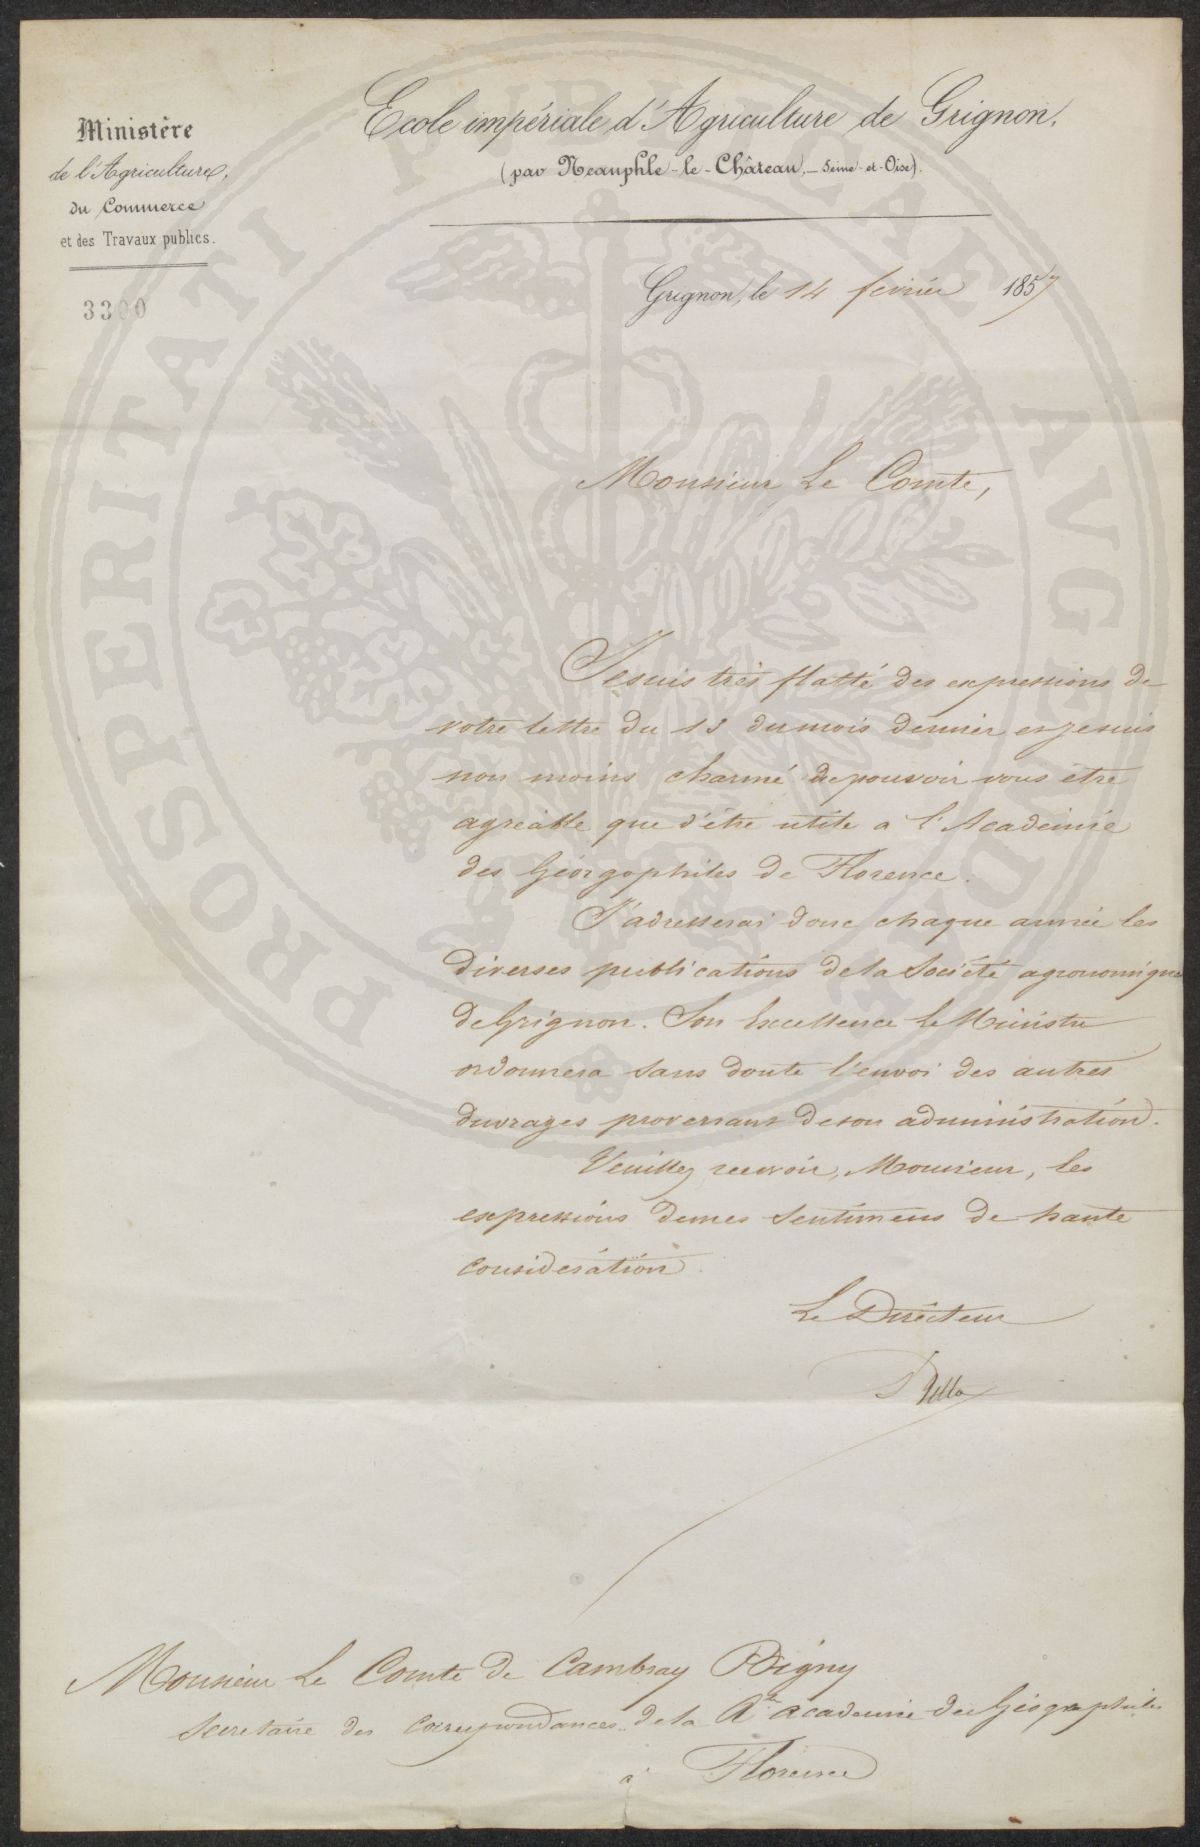 Ministère
de l'Agriculture,
du Commerce
et des Travaux publics.
3300
Ecole impériale d'Agriculture de Grignon,
(par Neauphle-le-Château, - Seine-et-Oise).
Grignon, le 14 février 1857
Monsieur Le Comte,
Je suis très flatté des expressions de
votre lettre du 13 du mois dernier et je suis
non moins charmé de pouvoir vous être
agréable que d'être utile a l'Académie
des Géorgophiles de Florence.
J'adresserai donc chaque année les
diverses publications de la Société agronomique
de Grignon. Son Excellence Le Ministre
ordonnera sans doute l'envoi des autres
ouvrages provenant de son administration.
Veuillez recevoir, Monsieur, les
expressions de mes sentimens de haute
considération.
Le Directeur
Bella
Monsieur Le Comte de Cambray Digny
Secretaire des correspondances de la Rle academie des Géographiles
à Florence
PROSPERITATI PUBLICAE AUGENDAE